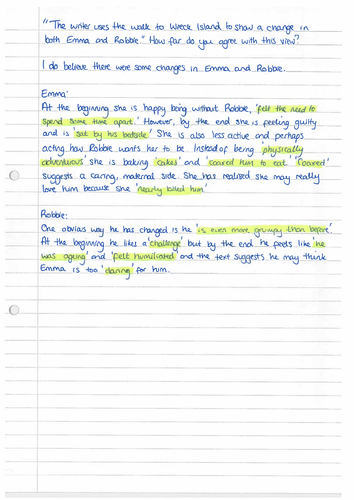 "The writer uses the walk to Wreck Island to show a change in
both Emma and Robbie." How far do you agree with this view?
I do believe there were some changes in Emma and Robbie.
Emma:
At the beginning she is happy being without Robbie, 'felt the need to
spend some time apart.' However, by the end she is feeling guilty
and is 'sat by his bedside.' She is also less active and perhaps
acting how Robbie wants her to be. Instead of being 'physically
adventurous' she is baking 'cakes' and 'coaxed him to eat.' 'Coaxed'
suggests a caring, maternal side. She has realised she may really
love him because she 'nearly killed him'.
Robbie:
One obvious way he has changed is he 'is even more grumpy than before.'
At the beginning he likes a 'challenge' but by the end he feels like 'he
was ageing' and 'felt humiliated' and the text suggests he may think
Emma is too 'daring' for him.